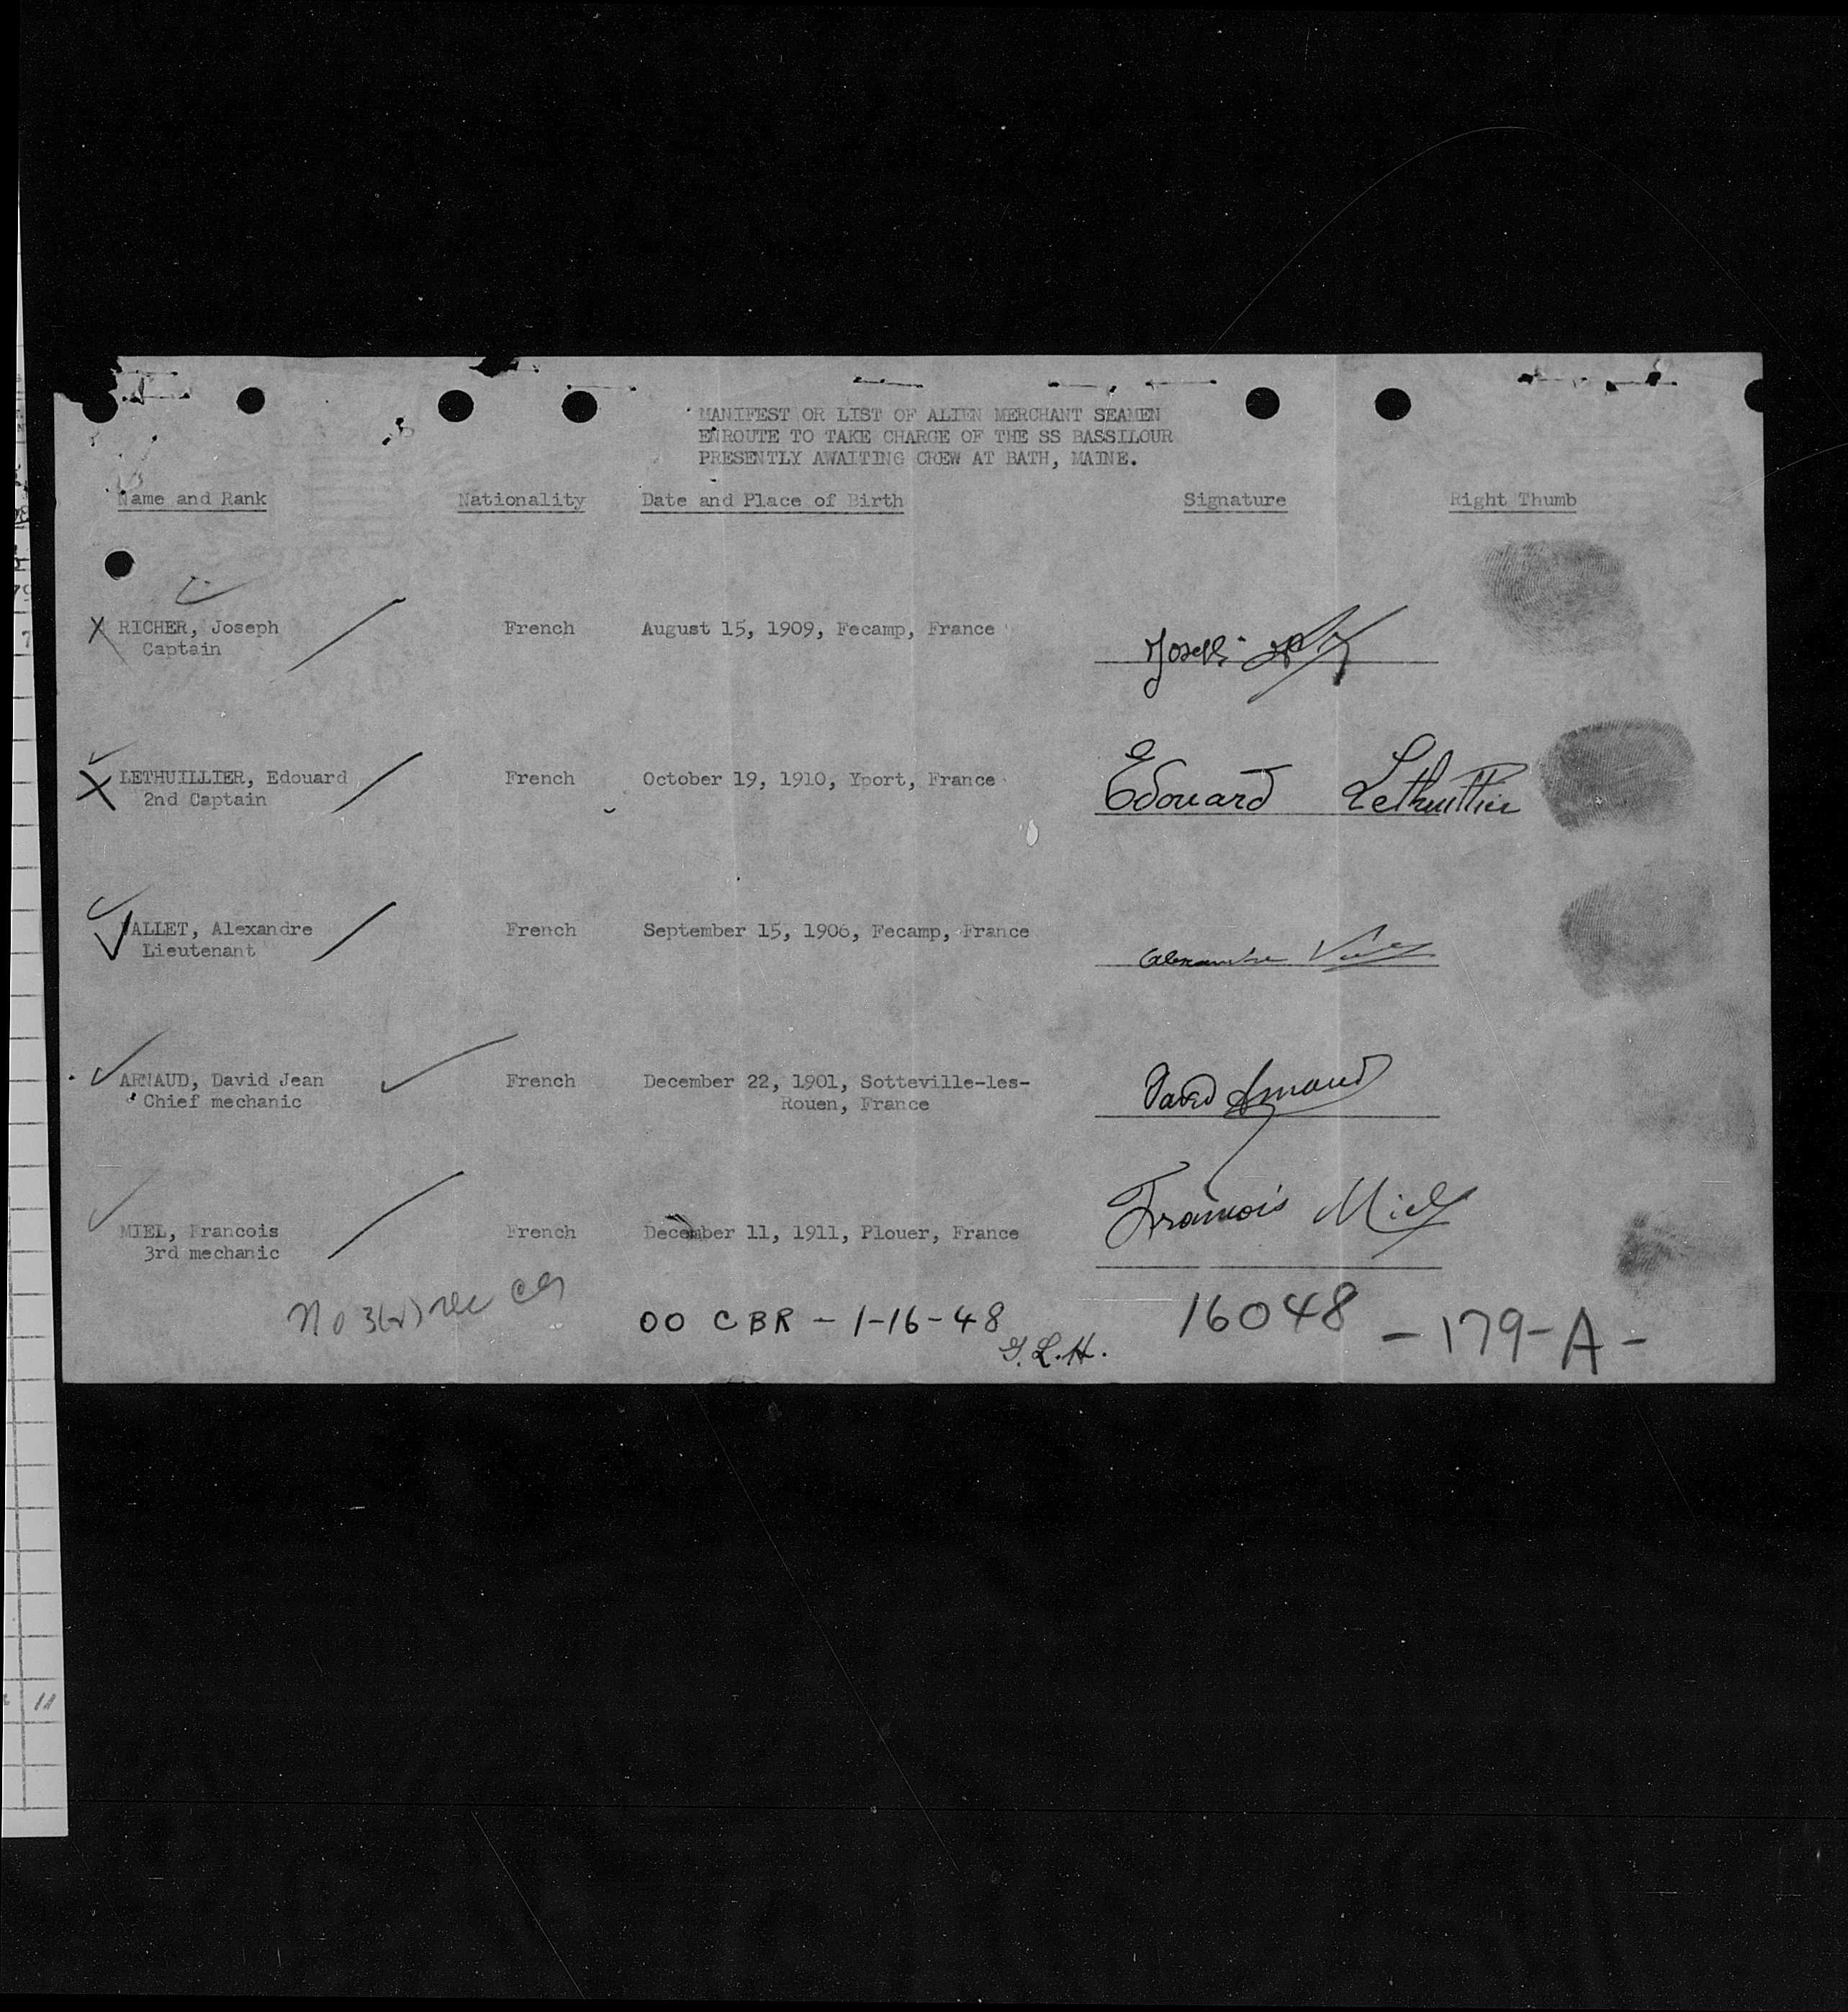 MANIFEST OR LIST OF ALIEN MERCHANT SEAMEN
ENROUTE TO TAKE CHARGE OF THE SS BASSILOUR
PRESENTLY AWAITING CREW AT BATH, MAINE.
Name and Rank Nationality Date and Place of Birth Signature Right Thumb
X RICHER, Joseph French August 15, 1909, Fecamp, France Joseph
Captain
X LETHUILLIER, Edouard French October 19, 1910, Yport, France Edouard Lethuillier
2nd Captain
ALLET, Alexandre French September 15, 1906, Fecamp, France Alexandre
Lieutenant
ARNAUD, David Jean French December 22, 1901, Sotteville-les- David Arnaud
Chief mechanic Rouen, France
MIEL, Francois French December 11, 1911, Plouer, France François Miel
3rd mechanic
No
00 CBR - 1-16-48 16048 - 179-A-
G.L.H.
11